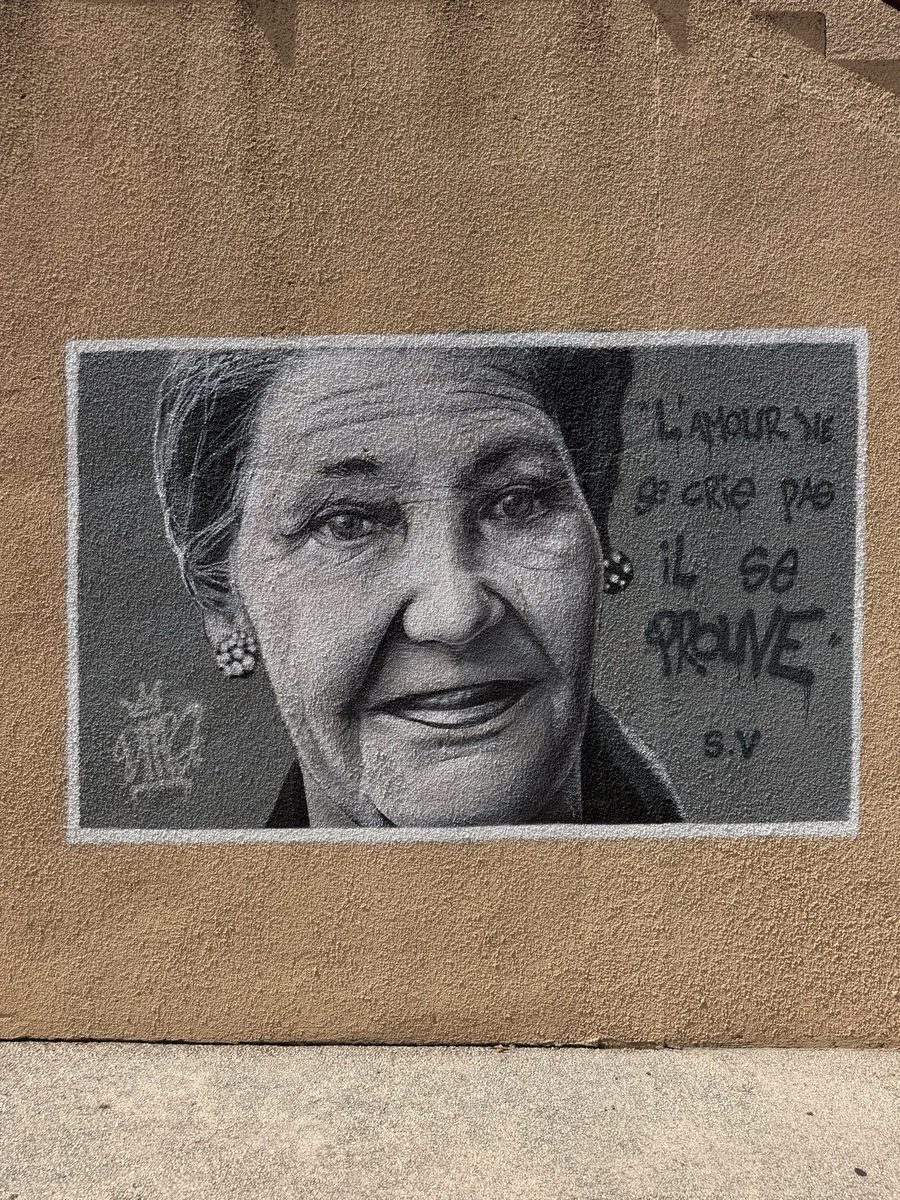 "L'AMOUR NE
Se CRIe PAS
iL Se
PROUVE"
S.V